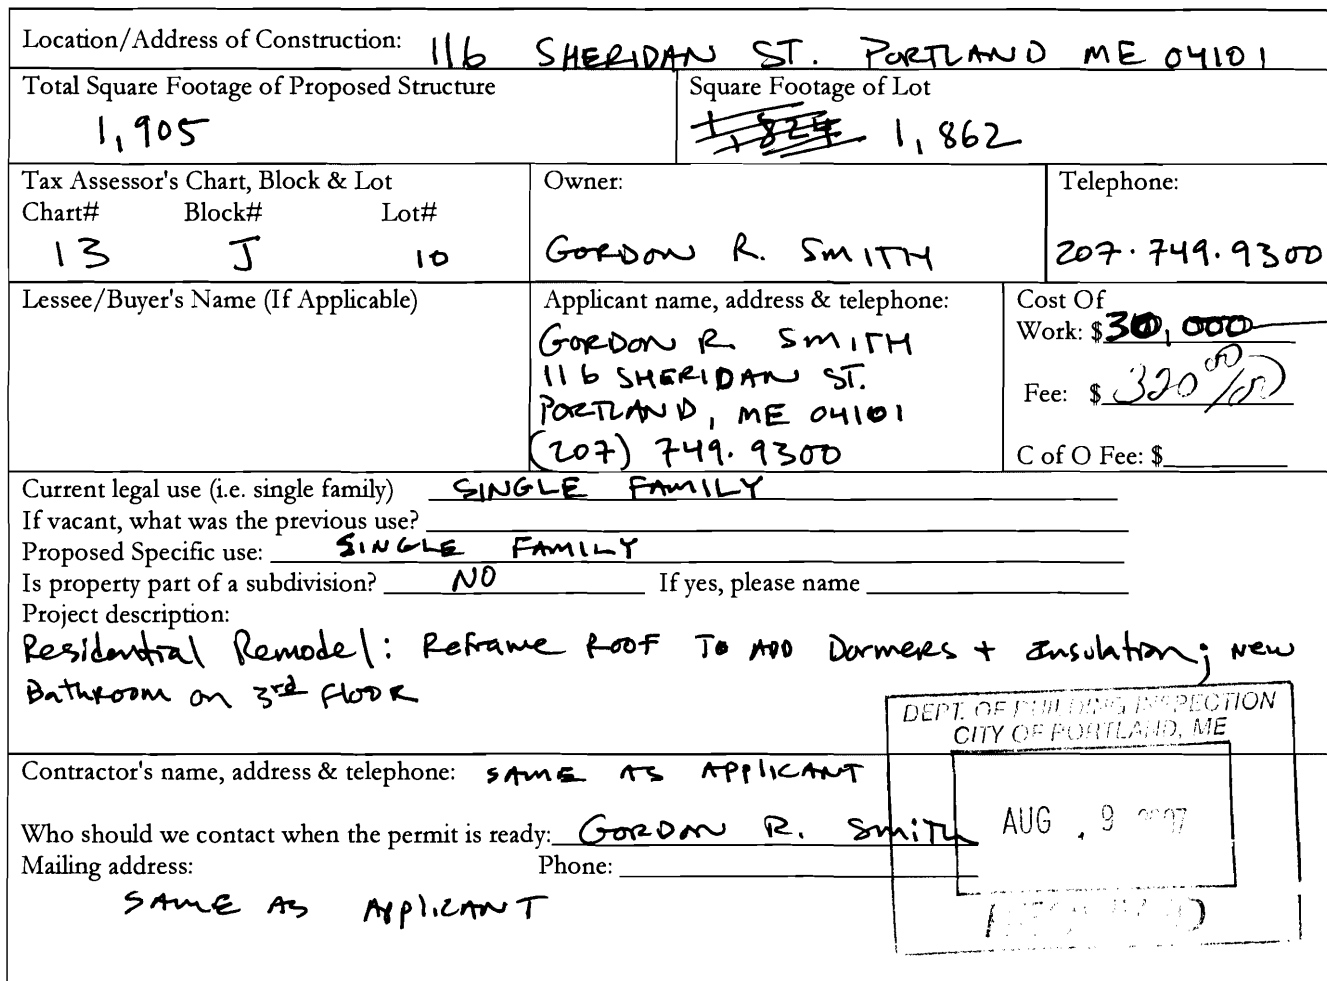 Location/Address of Construction: 116 SHERIDAN ST. PORTLAND ME 04101
Total Square Footage of Proposed Structure
1,905
Square Footage of Lot
1,824 1,862
Tax Assessor's Chart, Block & Lot
Chart# Block# Lot#
13 J 10
Owner:
GORDON R. SMITH
Telephone:
207.749.9300
Lessee/Buyer's Name (If Applicable)
Applicant name, address & telephone:
GORDON R. SMITH
116 SHERIDAN ST.
PORTLAND, ME 04101
(207) 749.9300
Cost Of
Work: $30,000
Fee: $ 320
C of O Fee: $
Current legal use (i.e. single family) SINGLE FAMILY
If vacant, what was the previous use?
Proposed Specific use: SINGLE FAMILY
Is property part of a subdivision? NO If yes, please name
Project description:
Residential Remodel: Reframe ROOF TO ADD Dormers + Insulation; New
Bathroom on 3rd FLOOR
DEPT. OF BUILDING INSPECTION
CITY OF PORTLAND, ME
Contractor's name, address & telephone: SAME AS APPLICANT
AUG 9
Who should we contact when the permit is ready: GORDON R. SMITH
Mailing address: Phone:
SAME AS APPLICANT